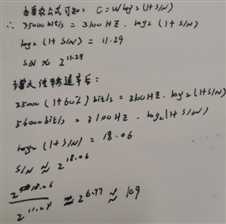 由香农公式可知: C = W log₂(1+S/N)
∴ 35000 bit/s = 3100 HZ · log₂(1+S/N)
log₂(1+S/N) = 11.29
S/N ≈ 2^11.29
最大传输速率后:
35000(1+60%) bit/s = 3100 HZ · log₂(1+S/N)
56000 bit/s = 3100 HZ · log₂(1+S/N)
log₂(1+S/N) = 18.06
S/N ≈ 2^18.06
2^18.06 / 2^11.29 ≈ 2^6.77 ≈ 109